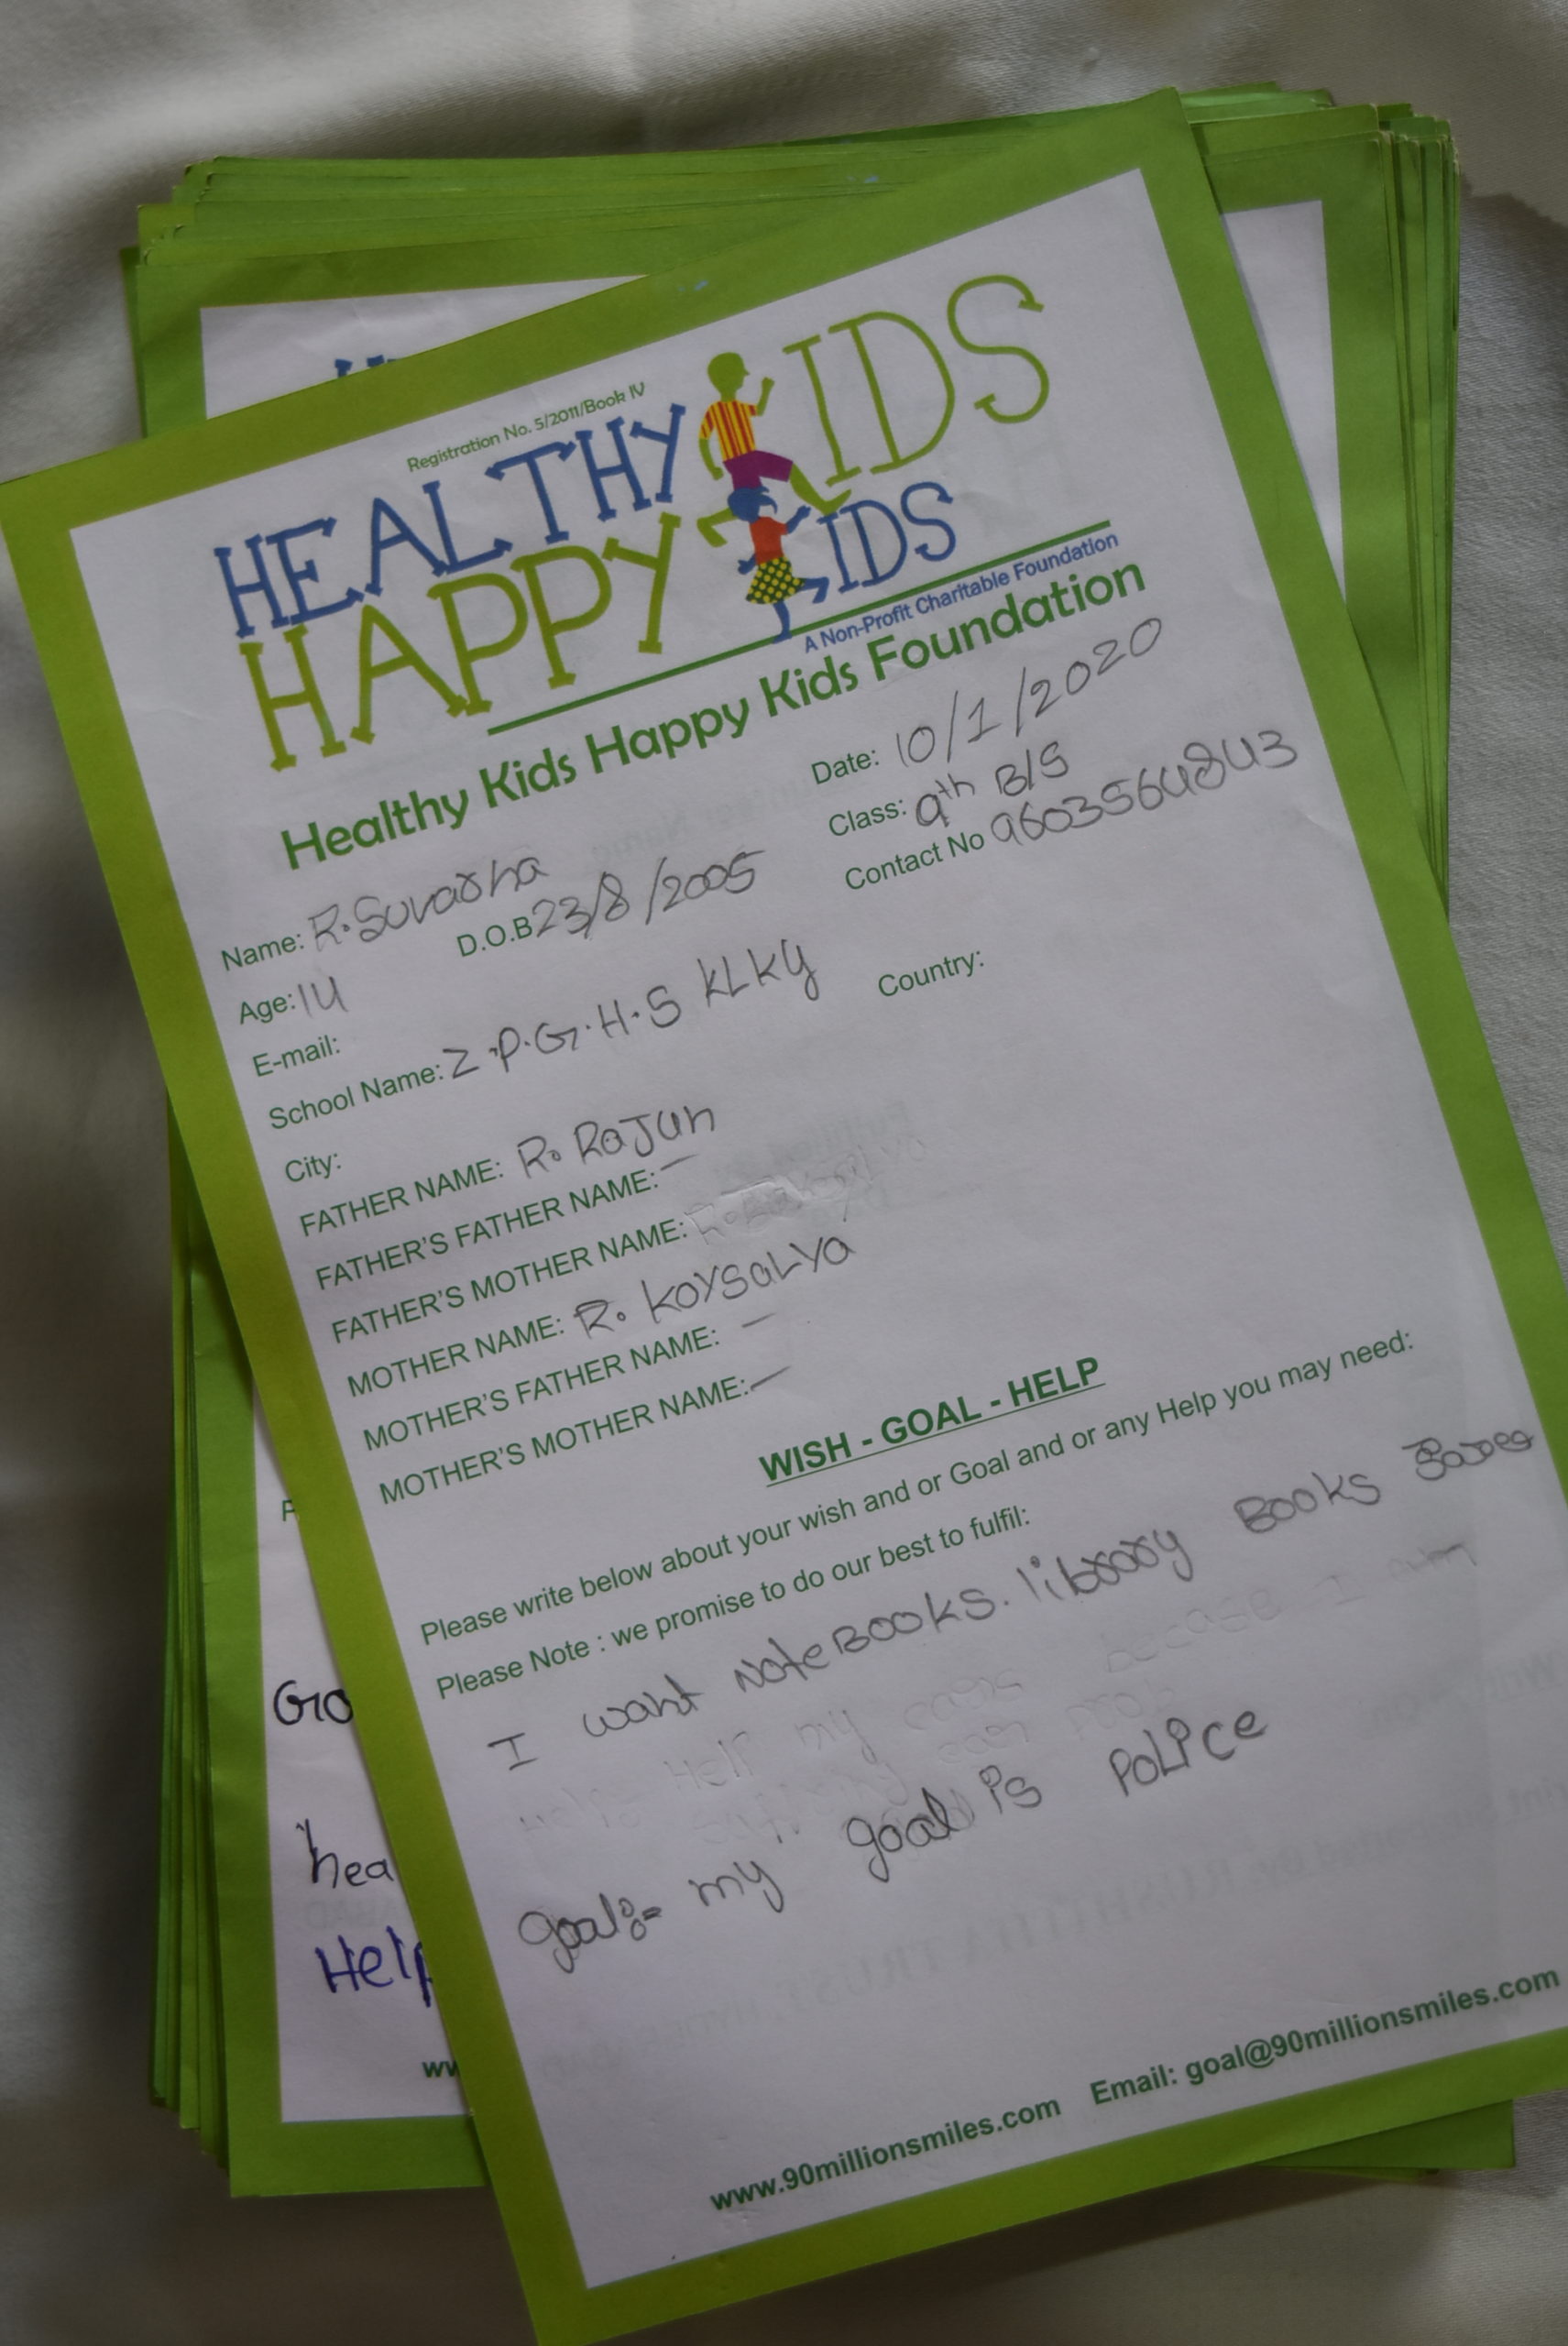 Registration No. 5/2011/Book IV
HEALTHY KIDS
HAPPY KIDS
A Non-Profit Charitable Foundation
Healthy Kids Happy Kids Foundation
Date: 10/1/2020
Name: R. Suvarna Class: 9th B/S
Age: 14 D.O.B 23/8/2005 Contact No 9603564843
E-mail:
School Name: Z.P.G.H.S KLKY Country:
City:
FATHER NAME: R. RaJUn
FATHER'S FATHER NAME: –
FATHER'S MOTHER NAME:
MOTHER NAME: R. KOYSALYA
MOTHER'S FATHER NAME: –
MOTHER'S MOTHER NAME: –
WISH - GOAL - HELP
Please write below about your wish and or Goal and or any Help you may need:
Please Note : we promise to do our best to fulfil:
I want NoteBOOKS. library BOOKS
Help my because I am
goal:= my goal is POLICE
www.90millionsmiles.com Email: goal@90millionsmiles.com
Go
hea
Help
ww